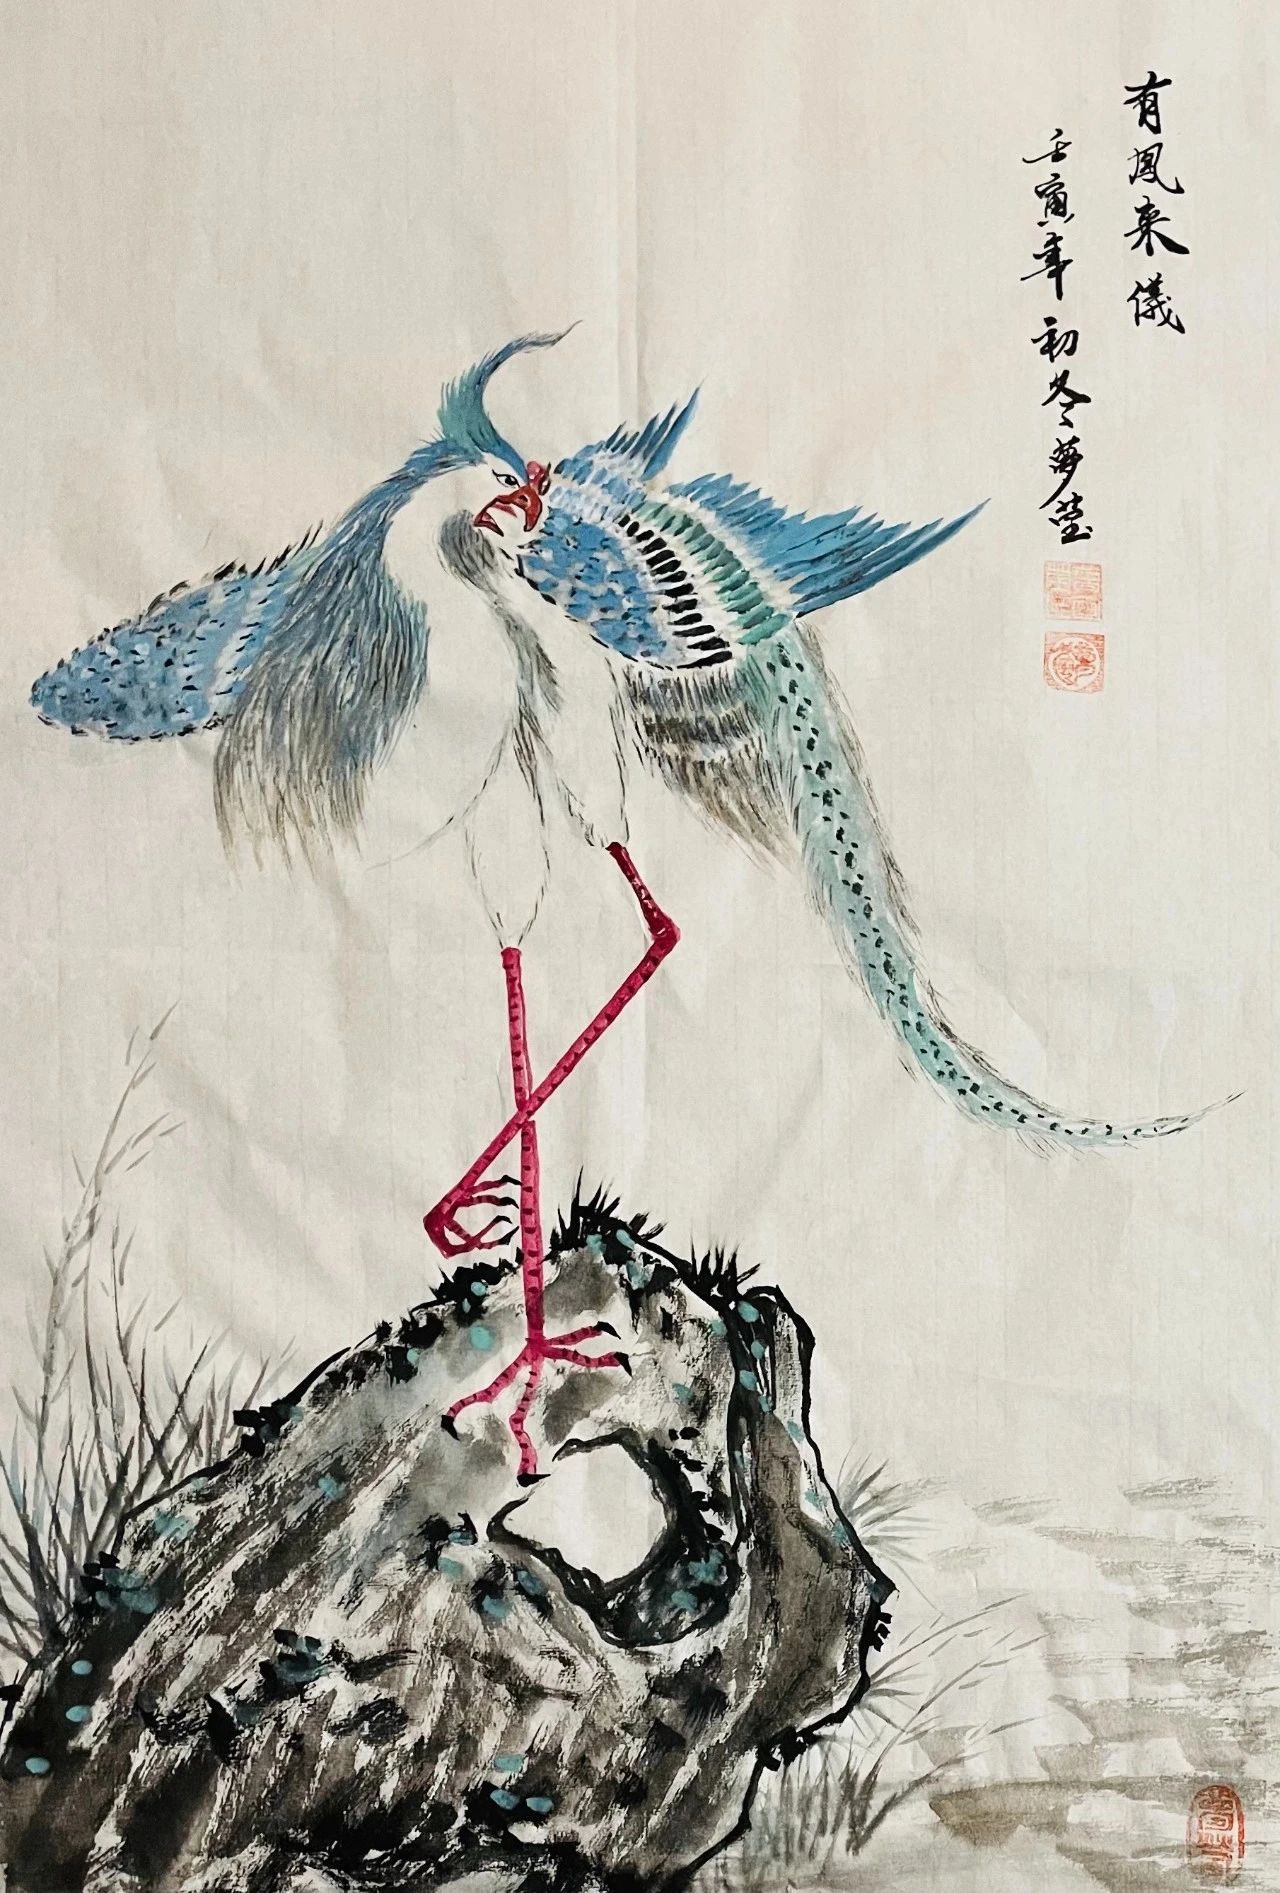 有鳳来儀
壬寅年初冬夢瑩